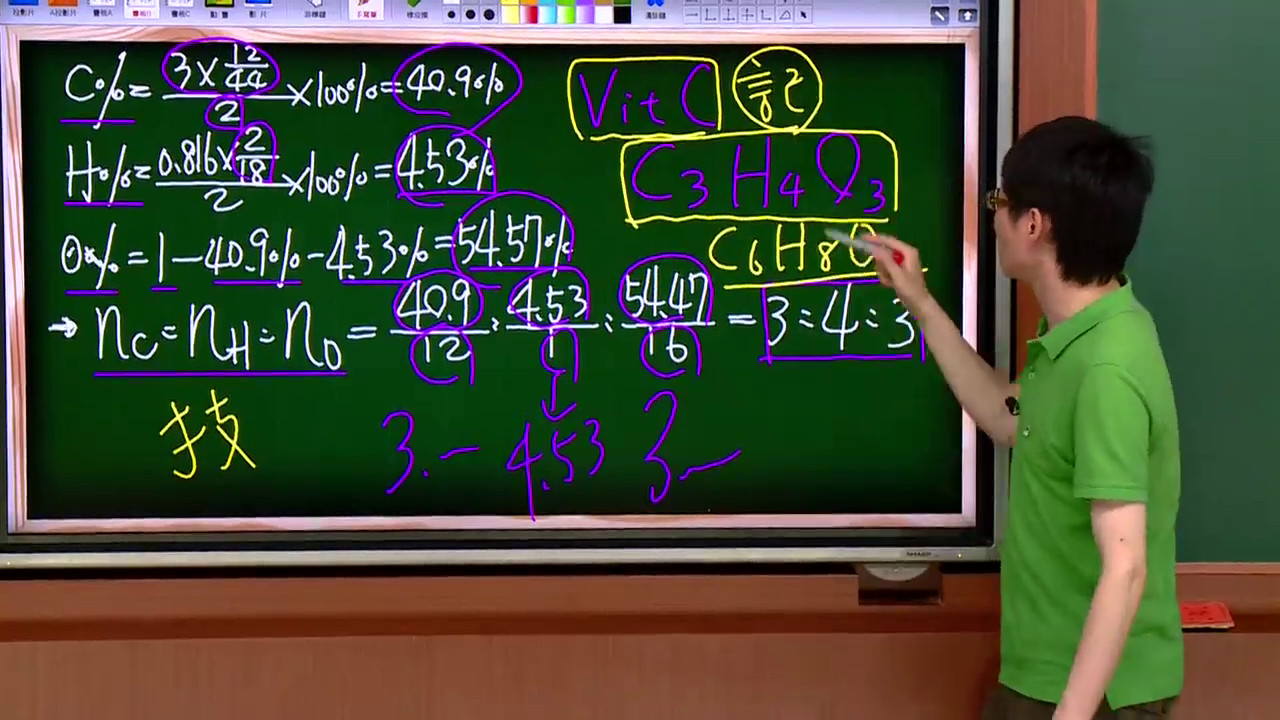 C%= 3×12/44 / 2 ×100%=40.9%
H%= 0.816×2/18 / 2 ×100%=4.53%
O%=1-40.9%-4.53%=54.57%
→ nC:nH:nO = 40.9/12 : 4.53/1 : 54.47/16 = 3:4:3
技
3.- 4.53 3-
Vit C 記
C3H4O3
C6H8O
SHARP